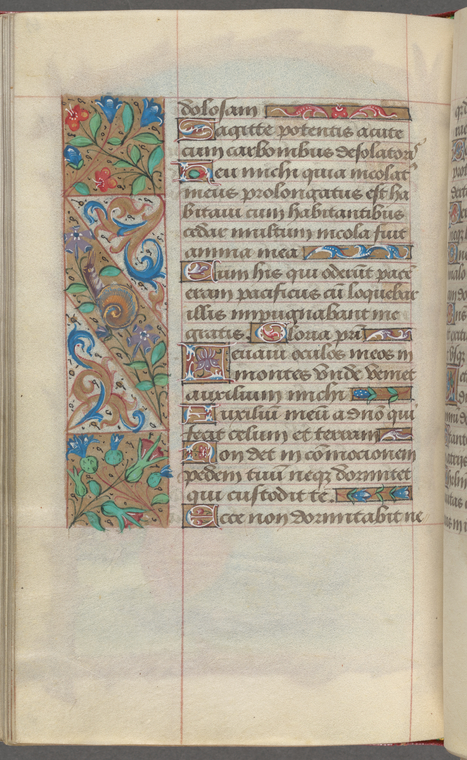 dolosam
Sagitte potentis acute
cum carbombus desolatorıꝰ
Heu michi quia incolat᷒
meus prolongatus est ha
bitaui cum habitantibus
cedar multum incola fuit
anima mea
Cum his qui oderūt pacē
eram pacificus cū loquebar
illis impugnabant me
gratis. Gloria pri̅
Leuaui oculos meos in
montes vnde veniet
auxilium michi
Auxiliū meū a dn̄o qui
fecit celum et terram
Non det in cōmocionem
pedem tuū neqz dormitet
qui custodit te.
Ecce non dormitabit ne